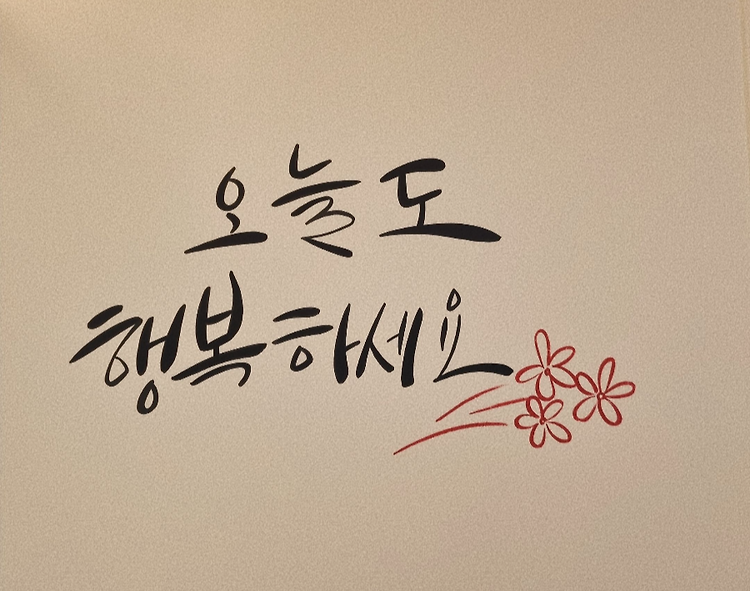 오늘도
행복하세요